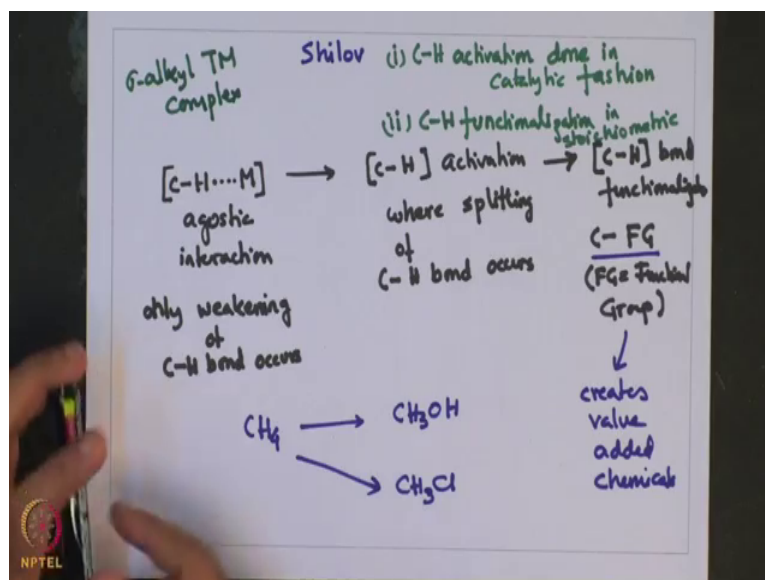 σ-alkyl TM
complex
Shilov (i) C-H activation done in
catalytic fashion
(ii) C-H functionalization in
stoichiometric
[C-H····M] → [C-H] activation → [C-H] bond
functionalization
agostic
interaction
where splitting
of
C-H bond occurs
C-FG
(FG = Functional
Group)
only weakening
of
C-H bond occurs
creates
value
added
chemicals
CH4 → CH3OH
→ CH3Cl
NPTEL